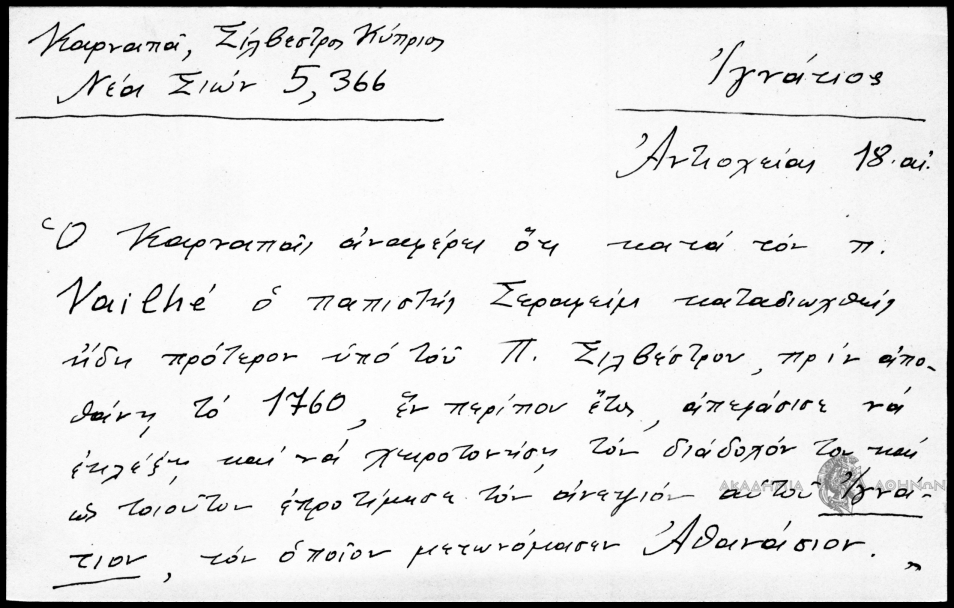 Καρναπᾶ, Σίλβεστρος Κύπριος
Νέα Σιών 5,366
Ἰγνάτιος
Ἀντιοχείας 18. αἰ.
Ὁ Καρναπᾶς ἀναφέρει ὅτι κατά τόν π.
Vailhé ὁ παπιστής Σεραφείμ καταδιωχθείς
ἤδη πρότερον ὑπό τοῦ Π. Σιλβέστρου, πρίν ἀπο-
θάνῃ τό 1760, ἕν περίπου ἔτος, ἀπεφάσισε νά
ἐκλέξῃ καί νά χειροτονήσῃ τόν διάδοχόν του καί
ὡς τοιοῦτον ἐπροτίμησε τόν ἀνεψιόν αὐτοῦ Ἰγνά-
τιον, τόν ὁποῖον μετωνόμασεν Ἀθανάσιον.
ΑΚΑΔΗΜΙΑ ΑΘΗΝΩΝ